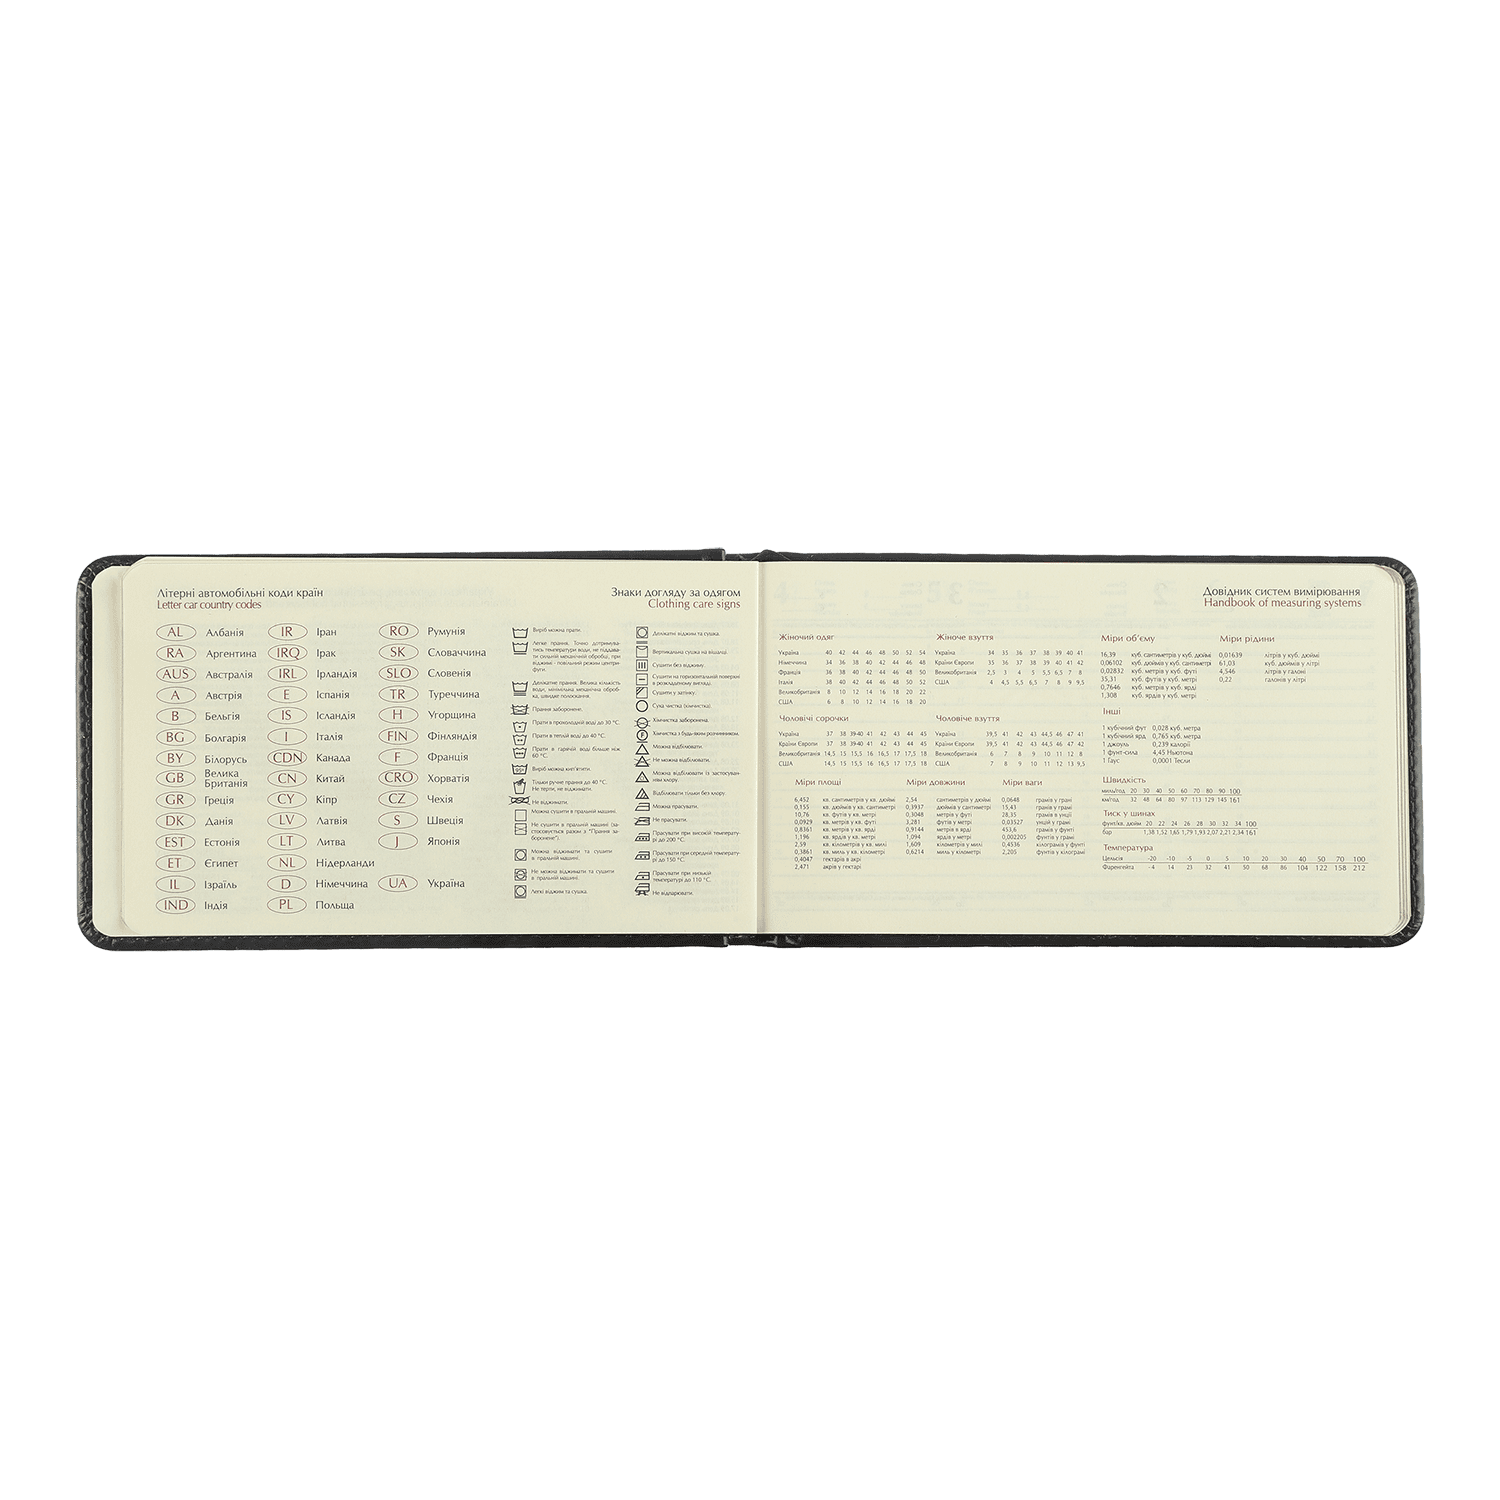 Літерні автомобільні коди країн
Letter car country codes
AL Албанія
RA Аргентина
AUS Австралія
A Австрія
B Бельгія
BG Болгарія
BY Білорусь
GB Велика
Британія
GR Греція
DK Данія
EST Естонія
ET Єгипет
IL Ізраїль
IND Індія
IR Іран
IRQ Ірак
IRL Ірландія
E Іспанія
IS Ісландія
I Італія
CDN Канада
CN Китай
CY Кіпр
LV Латвія
LT Литва
NL Нідерланди
D Німеччина
PL Польща
RO Румунія
SK Словаччина
SLO Словенія
TR Туреччина
H Угорщина
FIN Фінляндія
F Франція
CRO Хорватія
CZ Чехія
S Швеція
J Японія
UA Україна
Знаки догляду за одягом
Clothing care signs
Виріб можна прати.
Легке прання. Точно дотримува-
тись температури води, не піддава-
ти сильній механічній обробці, при
віджимі - повільний режим центри-
фуги.
Делікатне прання. Велика кількість
води, мінімальна механічна оброб-
ка, швидке полоскання.
Прання заборонене.
Прати в прохолодній воді до 30 °C.
Прати в теплій воді до 40 °C.
Прати в гарячій воді більше ніж
60 °C.
Виріб можна кип'ятити.
Тільки ручне прання до 40 °C.
Не терти, не віджимати.
Не віджимати.
Можна сушити в пральній машині.
Не сушити в пральній машині (за-
стосовується разом з "Прання за-
боронене").
Можна віджимати та сушити
в пральній машині.
Не можна віджимати та сушити
в пральній машині.
Легкі віджим та сушка.
Делікатні віджим та сушка.
Вертикальна сушка на вішалці.
Сушити без віджиму.
Сушити на горизонтальній поверхні
в розкладеному вигляді.
Сушити у затінку.
Суха чистка (хімчистка).
Хімчистка заборонена.
Хімчистка з будь-яким розчинником.
Можна відбілювати.
Не можна відбілювати.
Можна відбілювати із застосуван-
ням хлору.
Відбілювати тільки без хлору.
Можна прасувати.
Не прасувати.
Прасувати при високій температу-
рі до 200 °C.
Прасувати при середній температу-
рі до 150 °C.
Прасувати при низькій
температурі до 110 °C.
Не відпарювати.
Довідник систем вимірювання
Handbook of measuring systems
Жіночий одяг
Україна 40 42 44 46 48 50 52 54
Німеччина 34 36 38 40 42 44 46 48
Франція 36 38 40 42 44 46 48 50
Італія 38 40 42 44 46 48 50 52
Великобританія 8 10 12 14 16 18 20 22
США 6 8 10 12 14 16 18 20
Жіноче взуття
Україна 34 35 36 37 38 39 40 41
Країни Європи 35 36 37 38 39 40 41 42
Великобританія 2,5 3 4 5 5,5 6,5 7 8
США 4 4,5 5,5 6,5 7 8 9 9,5
Чоловічі сорочки
Україна 37 38 39-40 41 42 43 44 45
Країни Європи 37 38 39-40 41 42 43 44 45
Великобританія 14,5 15 15,5 16 16,5 17 17,5 18
США 14,5 15 15,5 16 16,5 17 17,5 18
Чоловіче взуття
Україна 39,5 41 42 43 44,5 46 47 41
Країни Європи 39,5 41 42 43 44,5 46 47 42
Великобританія 6 7 8 9 10 11 12 8
США 7 8 9 10 11 12 13 9,5
Міри площі
6,452 кв. сантиметрів у кв. дюймі
0,155 кв. дюймів у кв. сантиметрі
10,76 кв. футів у кв. метрі
0,0929 кв. метрів у кв. футі
0,8361 кв. метрів у кв. ярді
1,196 кв. ярдів у кв. метрі
2,59 кв. кілометрів у кв. милі
0,3861 кв. миль у кв. кілометрі
0,4047 гектарів в акрі
2,471 акрів у гектарі
Міри довжини
2,54 сантиметрів у дюймі
0,3937 дюймів у сантиметрі
0,3048 метрів у футі
3,281 футів у метрі
0,9144 метрів в ярді
1,094 ярдів у метрі
1,609 кілометрів у милі
0,6214 миль у кілометрі
Міри ваги
0,0648 грамів у грані
15,43 гранів у грамі
28,35 грамів в унції
0,03527 унцій у грамі
453,6 грамів у фунті
0,002205 фунтів у грамі
0,4536 кілограмів у фунті
2,205 фунтів у кілограмі
Міри об'єму
16,39 куб. сантиметрів у куб. дюймі
0,06102 куб. дюймів у куб. сантиметрі
0,02832 куб. метрів у куб. футі
35,31 куб. футів у куб. метрі
0,7646 куб. метрів у куб. ярді
1,308 куб. ярдів у куб. метрі
Міри рідини
0,01639 літрів у куб. дюймі
61,03 куб. дюймів у літрі
4,546 літрів у галоні
0,22 галонів у літрі
Інші
1 кубічний фут 0,028 куб. метра
1 кубічний ярд 0,765 куб. метра
1 джоуль 0,239 калорії
1 фунт-сила 4,45 Ньютона
1 Гаус 0,0001 Тесли
Швидкість
миль/год 20 30 40 50 60 70 80 90 100
км/год 32 48 64 80 97 113 129 145 161
Тиск у шинах
фунт/кв. дюйм 20 22 24 26 28 30 32 34 100
бар 1,38 1,52 1,65 1,79 1,93 2,07 2,21 2,34 161
Температура
Цельсія -20 -10 -5 0 5 10 20 30 40 50 70 100
Фаренгейта -4 14 23 32 41 50 68 86 104 122 158 212